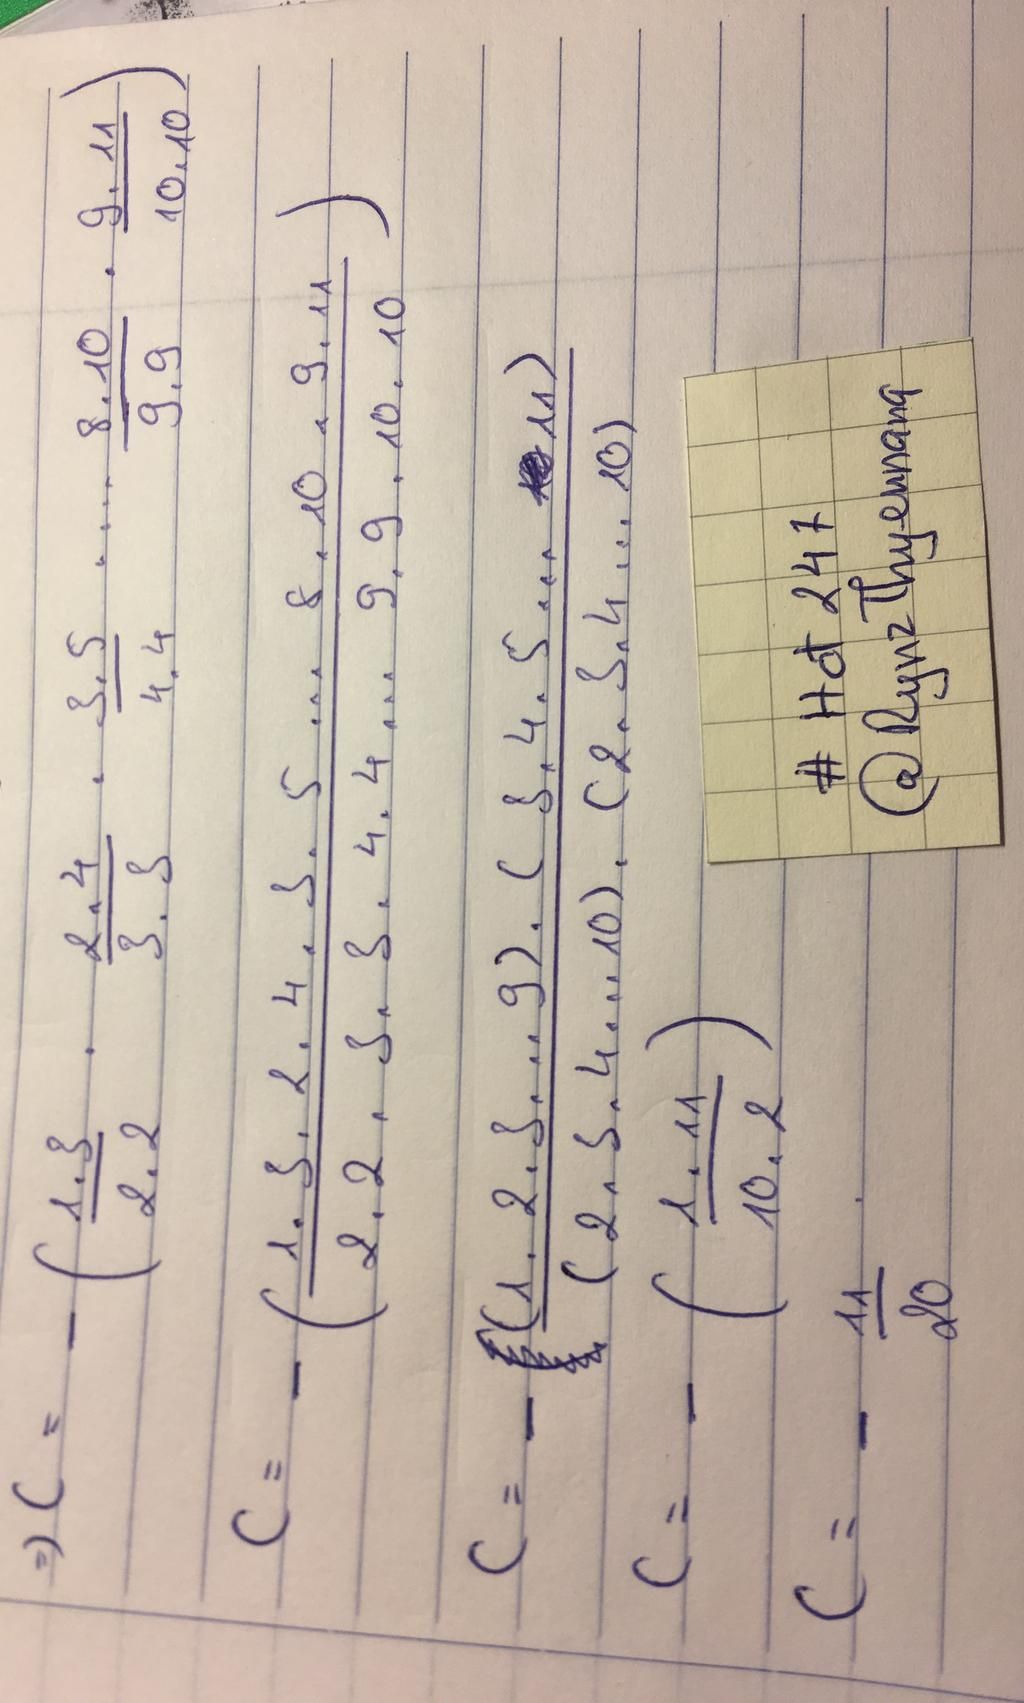 =) C = - ( 1.3/2.2 . 2.4/3.3 . 3.5/4.4 . ... 8.10/9.9 . 9.11/10.10 )
C = - ( 1.3.2.4.3.5...8.10.9.11 / 2.2.3.3.4.4...9.9.10.10 )
C = - (1.2.3...9).(3.4.5...11) / (2.3.4...10).(2.3.4...10)
C = - ( 1.11 / 10.2 )
C = - 11/20
# Hđ 247
@RynzThyennang